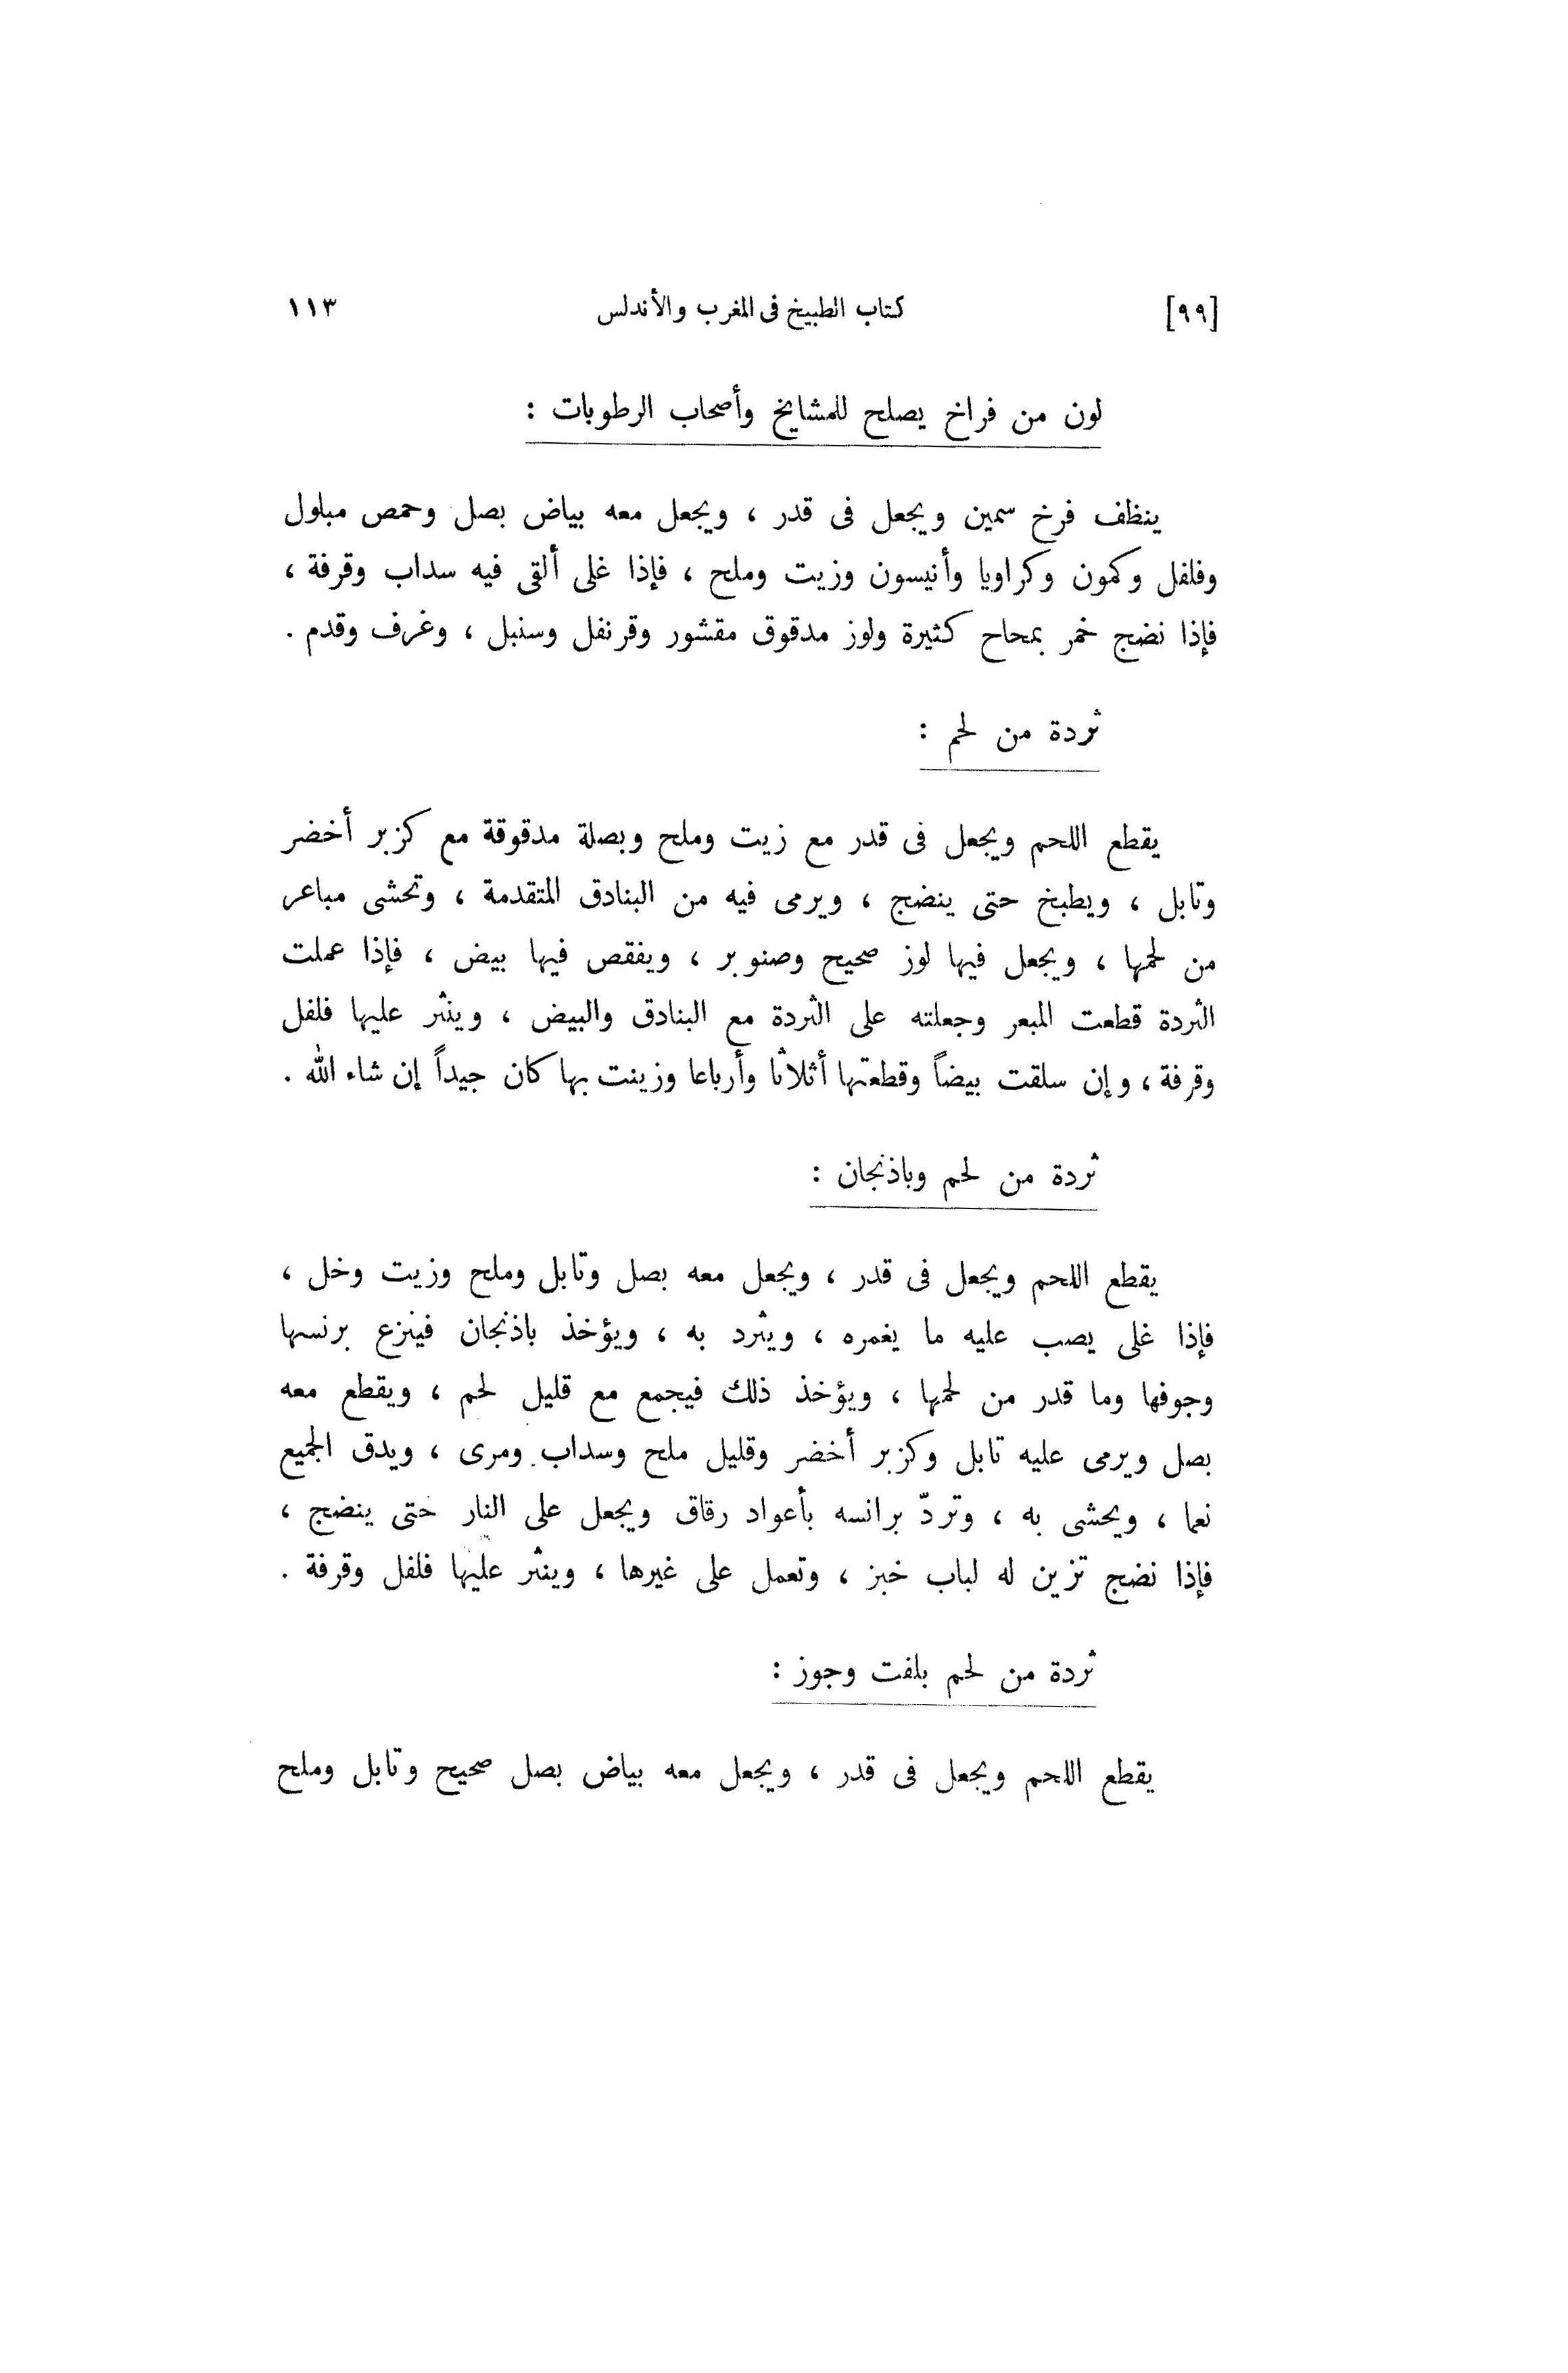 [٩٩] كتاب الطبيخ فى المغرب والأندلس ١١٣
لون من فراخ يصلح للمشايخ وأصحاب الرطوبات :
ينظف فرخ سمين ويجعل فى قدر ، ويجعل معه بياض بصل وحمص مبلول
وفلفل وكمون وكراويا وأنيسون وزيت وملح ، فإذا غلى ألقى فيه سداب وقرفة ،
فإذا نضج خمر بمحاح كثيرة ولوز مدقوق مقشور وقرنفل وسنبل ، وغرف وقدم .
ثردة من لحم :
يقطع اللحم ويجعل فى قدر مع زيت وملح وبصلة مدقوقة مع كزبر أخضر
وتابل ، ويطبخ حتى ينضج ، ويرمى فيه من البنادق المتقدمة ، وتحشى مباعر
من لحمها ، ويجعل فيها لوز صحيح وصنوبر ، ويفقص فيها بيض ، فإذا عملت
الثردة قطعت المبعر وجعلته على الثردة مع البنادق والبيض ، وينثر عليها فلفل
وقرفة ، وإن سلقت بيضاً وقطعتها أثلاثا وأرباعا وزينت بها كان جيداً إن شاء الله .
ثردة من لحم وباذنجان :
يقطع اللحم ويجعل فى قدر ، ويجعل معه بصل وتابل وملح وزيت وخل ،
فإذا غلى يصب عليه ما يغمره ، ويثرد به ، ويؤخذ باذنجان فينزع برنسها
وجوفها وما قدر من لحمها ، ويؤخذ ذلك فيجمع مع قليل لحم ، ويقطع معه
بصل ويرمى عليه تابل وكزبر أخضر وقليل ملح وسداب ومرى ، ويدق الجميع
نعما ، ويحشى به ، وتردّ برانسه بأعواد رقاق ويجعل على النار حتى ينضج ،
فإذا نضج تزين له لباب خبز ، وتعمل على غيرها ، وينثر عليها فلفل وقرفة .
ثردة من لحم بلفت وجوز :
يقطع اللحم ويجعل فى قدر ، ويجعل معه بياض بصل صحيح وتابل وملح